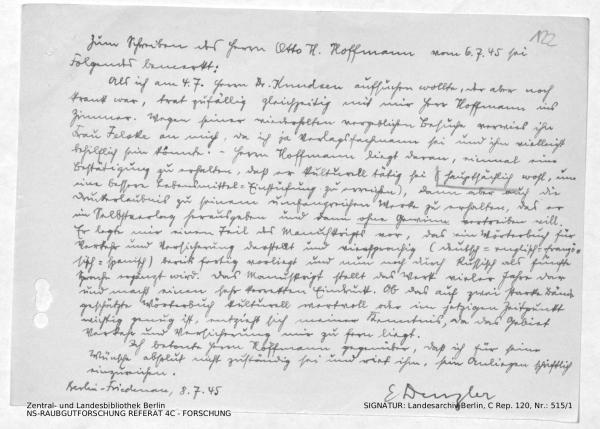 122
Zum Schreiben des Herrn Otto H. Hoffmann vom 6.7.45 sei
Folgendes bemerkt:
Als ich am 4.7. Herrn Dr. Knudsen aufsuchen wollte, der aber noch
krank war, trat zufällig gleichzeitig mit mir Herr Hoffmann ins
Zimmer. Wegen seiner wiederholten vergeblichen Besuche verwies ihn
Frau an mich, da ich ja Verlagsfachmann sei und ihm vielleicht
behilflich sein könnte. - Herrn Hoffmann liegt daran, einmal eine
Bestätigung zu erhalten, daß er kulturell tätig sei (hauptsächlich wohl, um
eine bessere Lebensmittel-Einstufung zu erreichen), dann aber auch die
Druckerlaubnis zu seinem umfangreichen Werke zu erhalten, das er
im Selbstverlag herausgeben und dann ohne Gewinn vertreiben will.
Er legte mir einen Teil des Manuskripts vor, das ein Wörterbuch für
Verkehr und Versicherung darstellt und viersprachig (deutsch = englisch = franzö-
sisch = spanisch) bereits fertig vorliegt und nun noch durch Russisch als fünfte
Sprache ergänzt wird. Das Manuskript stellt das Werk vieler Jahre dar
und macht einen sehr korrekten Eindruck. Ob das auf zwei starke Bände
geschätzte Wörterbuch kulturell wertvoll oder im jetzigen Zeitpunkt
wichtig genug ist, entzieht sich meiner Kenntnis, da das Gebiet
Verkehr und Versicherung mir zu fern liegt.
Ich betonte Herrn Hoffmann gegenüber, daß ich für seine
Wünsche absolut nicht zuständig sei und riet ihm, sein Anliegen schriftlich
einzureichen.
Berlin-Friedenau, 8.7.45
Zentral- und Landesbibliothek Berlin
NS-RAUBGUTFORSCHUNG REFERAT 4C - FORSCHUNG
SIGNATUR: Landesarchiv Berlin, C Rep. 120, Nr.: 515/1